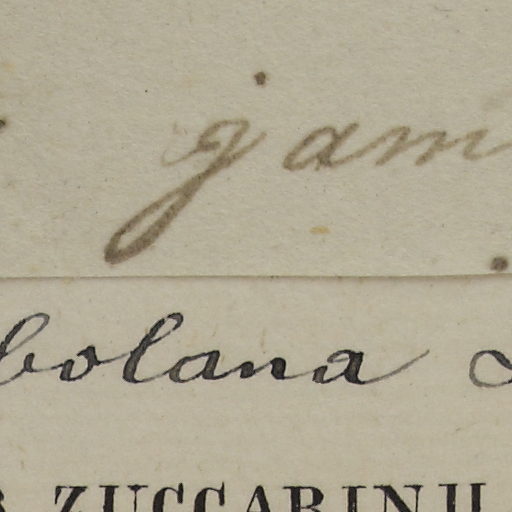 jam
bolana
ZUCCARINII